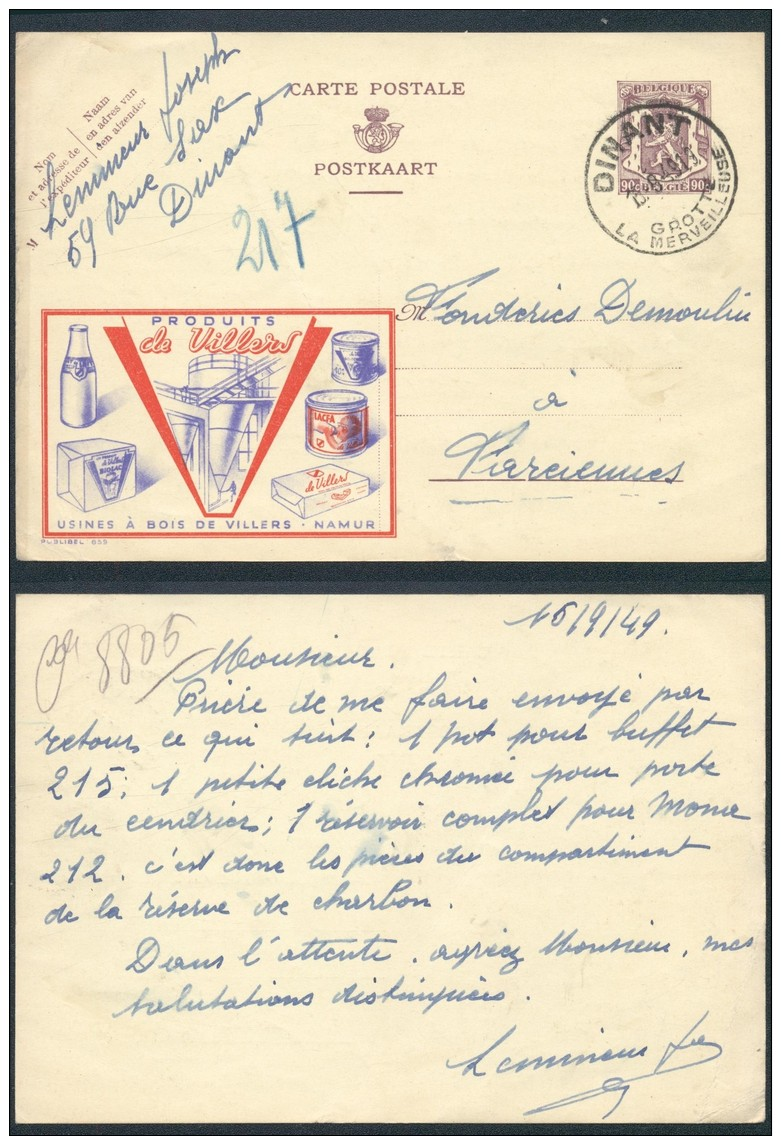 CARTE POSTALE
POSTKAART
Nom
et adresse de
l'expéditeur
Naam
en adres van
den afzender
M Lemineur Joseph
59 Rue Sax
Dinant
217
BELGIQUE
90c BELGIË 90c
DINANT
GROTTE
LA MERVEILLEUSE
PRODUITS
de Villers
LACFA
de Villers
USINES À BOIS DE VILLERS · NAMUR
PUBLIBEL 855
M Fonderies Demoulin
à
Farciennes
8805
15/9/49.
Monsieur.
Prière de me faire envoyé par
retour ce qui suit : 1 pot pour buffet
215; 1 petite cliche chromée pour porte
du cendrier; 1 réservoir complet pour Mona
212. c'est donc les pièces du compartiment
de la réserve de charbon.
Dans l'attente, agréez Monsieur, mes
salutations distinguées.
Lemineur